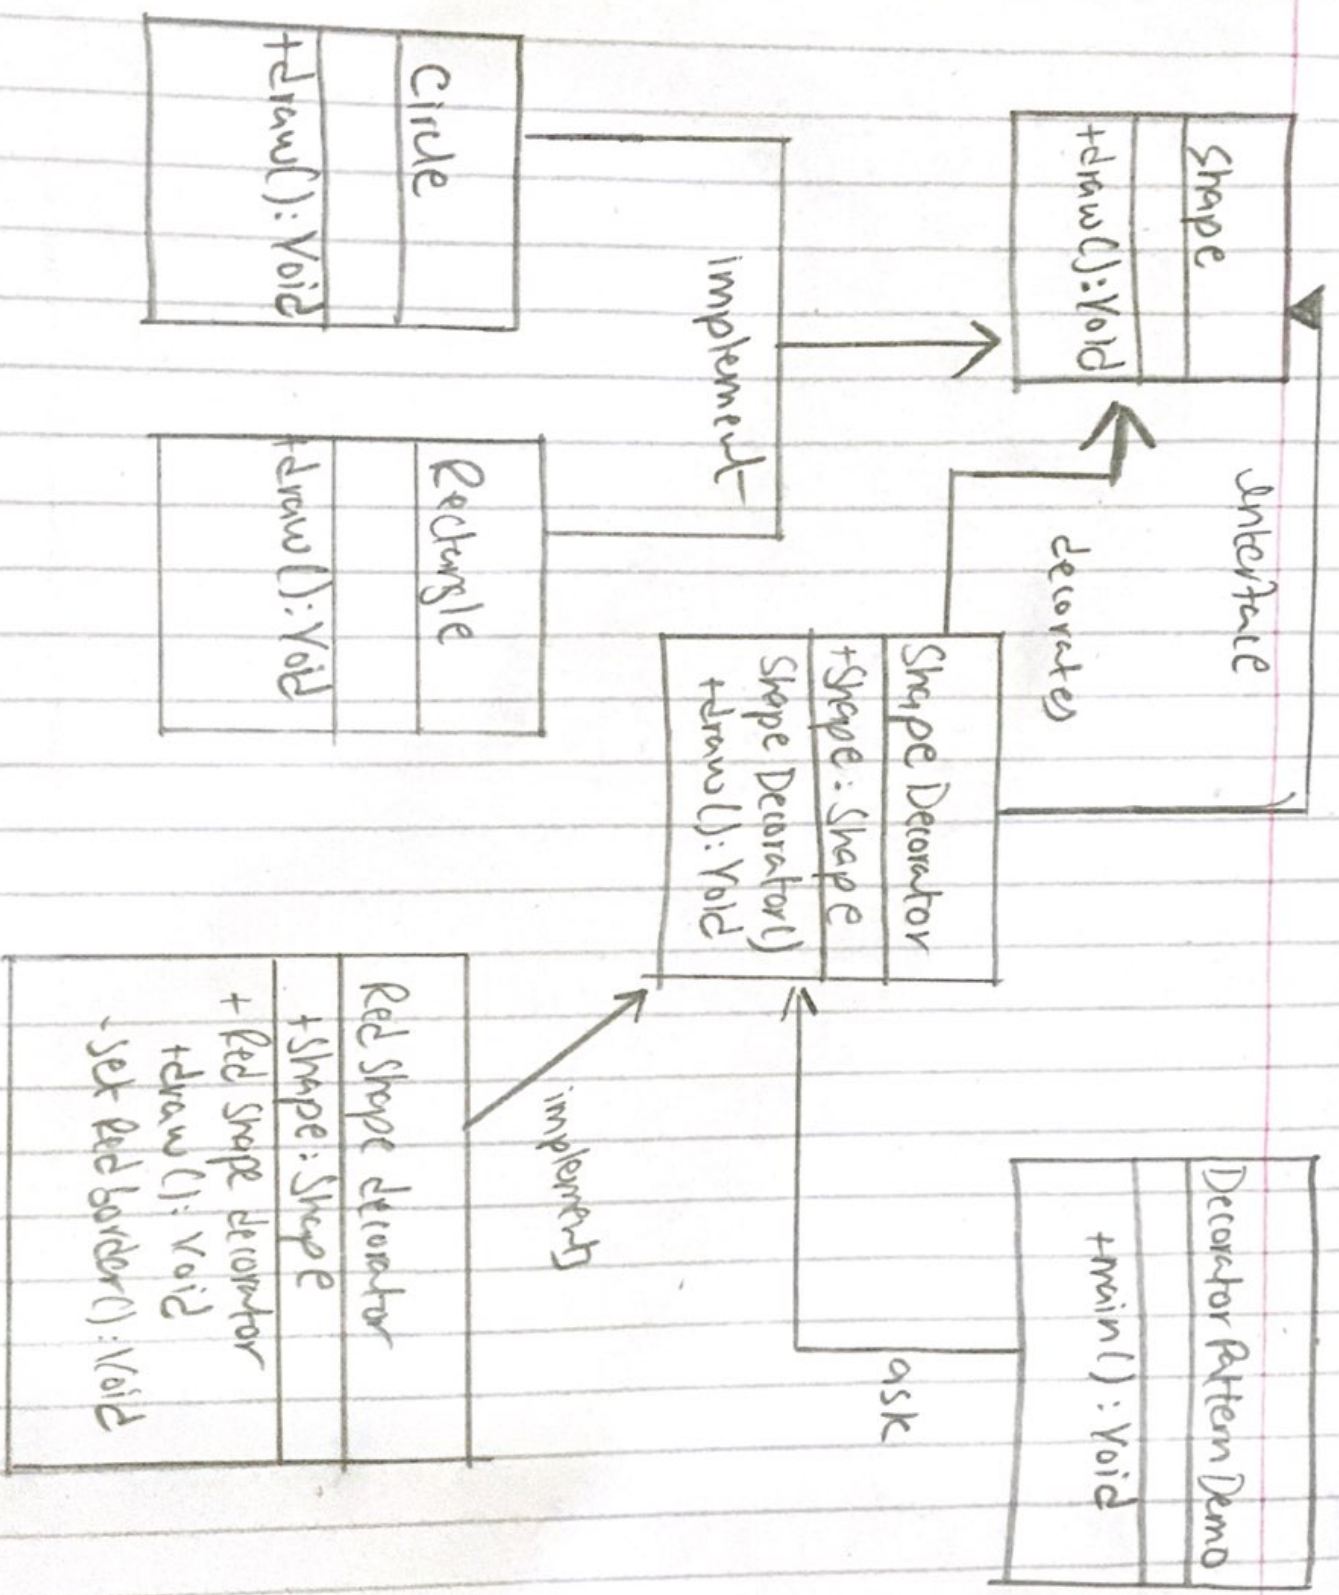 Shape
+draw():Void
Interface
decorates
implement
Circle
+draw():Void
Rectangle
+draw():Void
Shape Decorator
+Shape:Shape
Shape Decorator()
+draw():Void
Decorator Pattern Demo
+main():Void
ask
implements
Red Shape decorator
+Shape:Shape
+ Red Shape decorator
+draw():Void
- Set Red border():Void